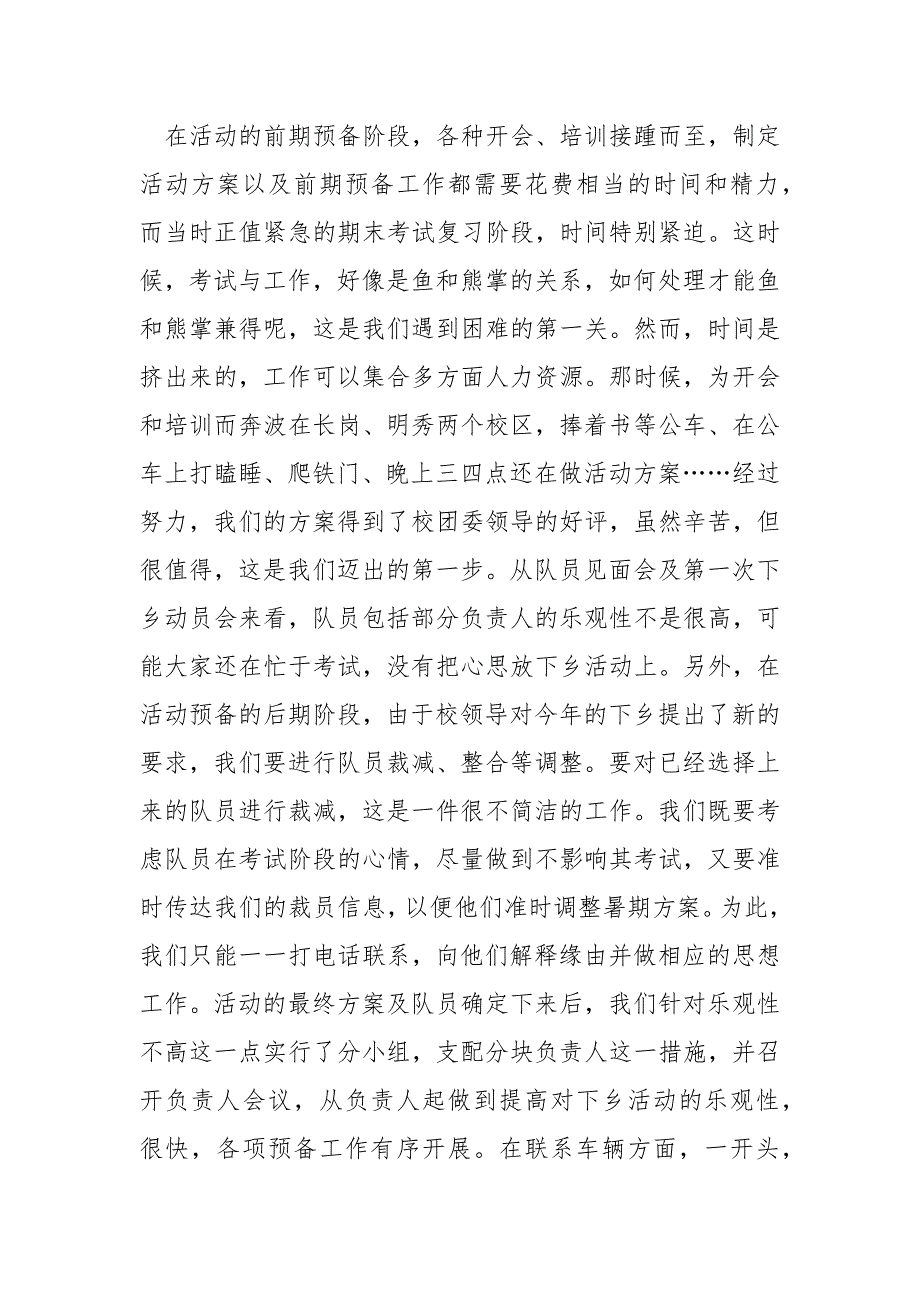 在活动的前期预备阶段，各种开会、培训接踵而至，制定
活动方案以及前期预备工作都需要花费相当的时间和精力，
而当时正值紧急的期末考试复习阶段，时间特别紧迫。这时
候，考试与工作，好像是鱼和熊掌的关系，如何处理才能鱼
和熊掌兼得呢，这是我们遇到困难的第一关。然而，时间是
挤出来的，工作可以集合多方面人力资源。那时候，为开会
和培训而奔波在长岗、明秀两个校区，捧着书等公车、在公
车上打瞌睡、爬铁门、晚上三四点还在做活动方案……经过
努力，我们的方案得到了校团委领导的好评，虽然辛苦，但
很值得，这是我们迈出的第一步。从队员见面会及第一次下
乡动员会来看，队员包括部分负责人的乐观性不是很高，可
能大家还在忙于考试，没有把心思放下乡活动上。另外，在
活动预备的后期阶段，由于校领导对今年的下乡提出了新的
要求，我们要进行队员裁减、整合等调整。要对已经选择上
来的队员进行裁减，这是一件很不简洁的工作。我们既要考
虑队员在考试阶段的心情，尽量做到不影响其考试，又要准
时传达我们的裁员信息，以便他们准时调整暑期方案。为此，
我们只能一一打电话联系，向他们解释缘由并做相应的思想
工作。活动的最终方案及队员确定下来后，我们针对乐观性
不高这一点实行了分小组，支配分块负责人这一措施，并召
开负责人会议，从负责人起做到提高对下乡活动的乐观性，
很快，各项预备工作有序开展。在联系车辆方面，一开头，